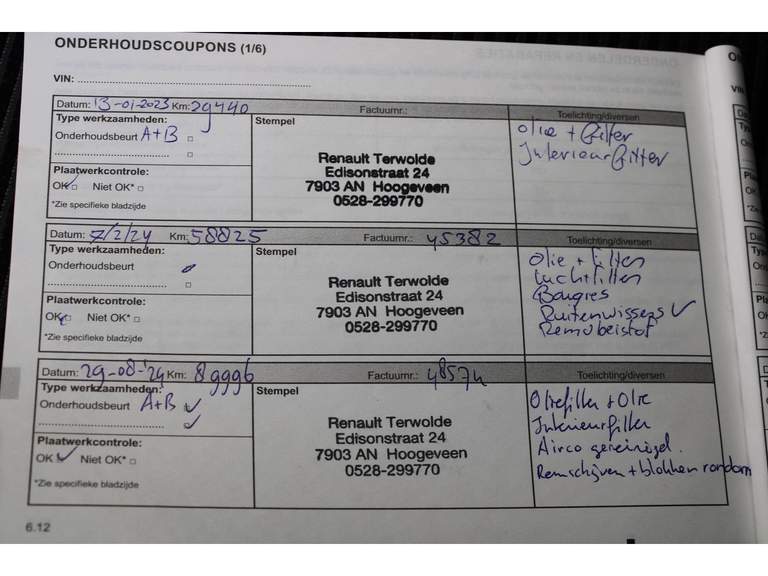 ONDERHOUDSCOUPONS (1/6)
VIN:
Datum: 13-01-2023 Km: 29440 Factuurnr.: Toelichting/diversen
Type werkzaamheden:
Onderhoudsbeurt A+B
Plaatwerkcontrole:
OK Niet OK*
*Zie specifieke bladzijde
Stempel
Renault Terwolde
Edisonstraat 24
7903 AN Hoogeveen
0528-299770
Olie + filter
Interieurfilter
Datum: 7/2/24 Km: 58825 Factuurnr.: 45382 Toelichting/diversen
Type werkzaamheden:
Onderhoudsbeurt
Plaatwerkcontrole:
OK Niet OK*
*Zie specifieke bladzijde
Stempel
Renault Terwolde
Edisonstraat 24
7903 AN Hoogeveen
0528-299770
Olie + filter
Luchtfilter
Bougies
Ruitenwissers
Remvloeistof
Datum: 29-08-'24 Km: 89996 Factuurnr.: 48574 Toelichting/diversen
Type werkzaamheden:
Onderhoudsbeurt A+B
Plaatwerkcontrole:
OK Niet OK*
*Zie specifieke bladzijde
Stempel
Renault Terwolde
Edisonstraat 24
7903 AN Hoogeveen
0528-299770
Oliefilter + Olie
Interieurfilter
Airco gereinigd.
Remschijven + blokken rondom
6.12